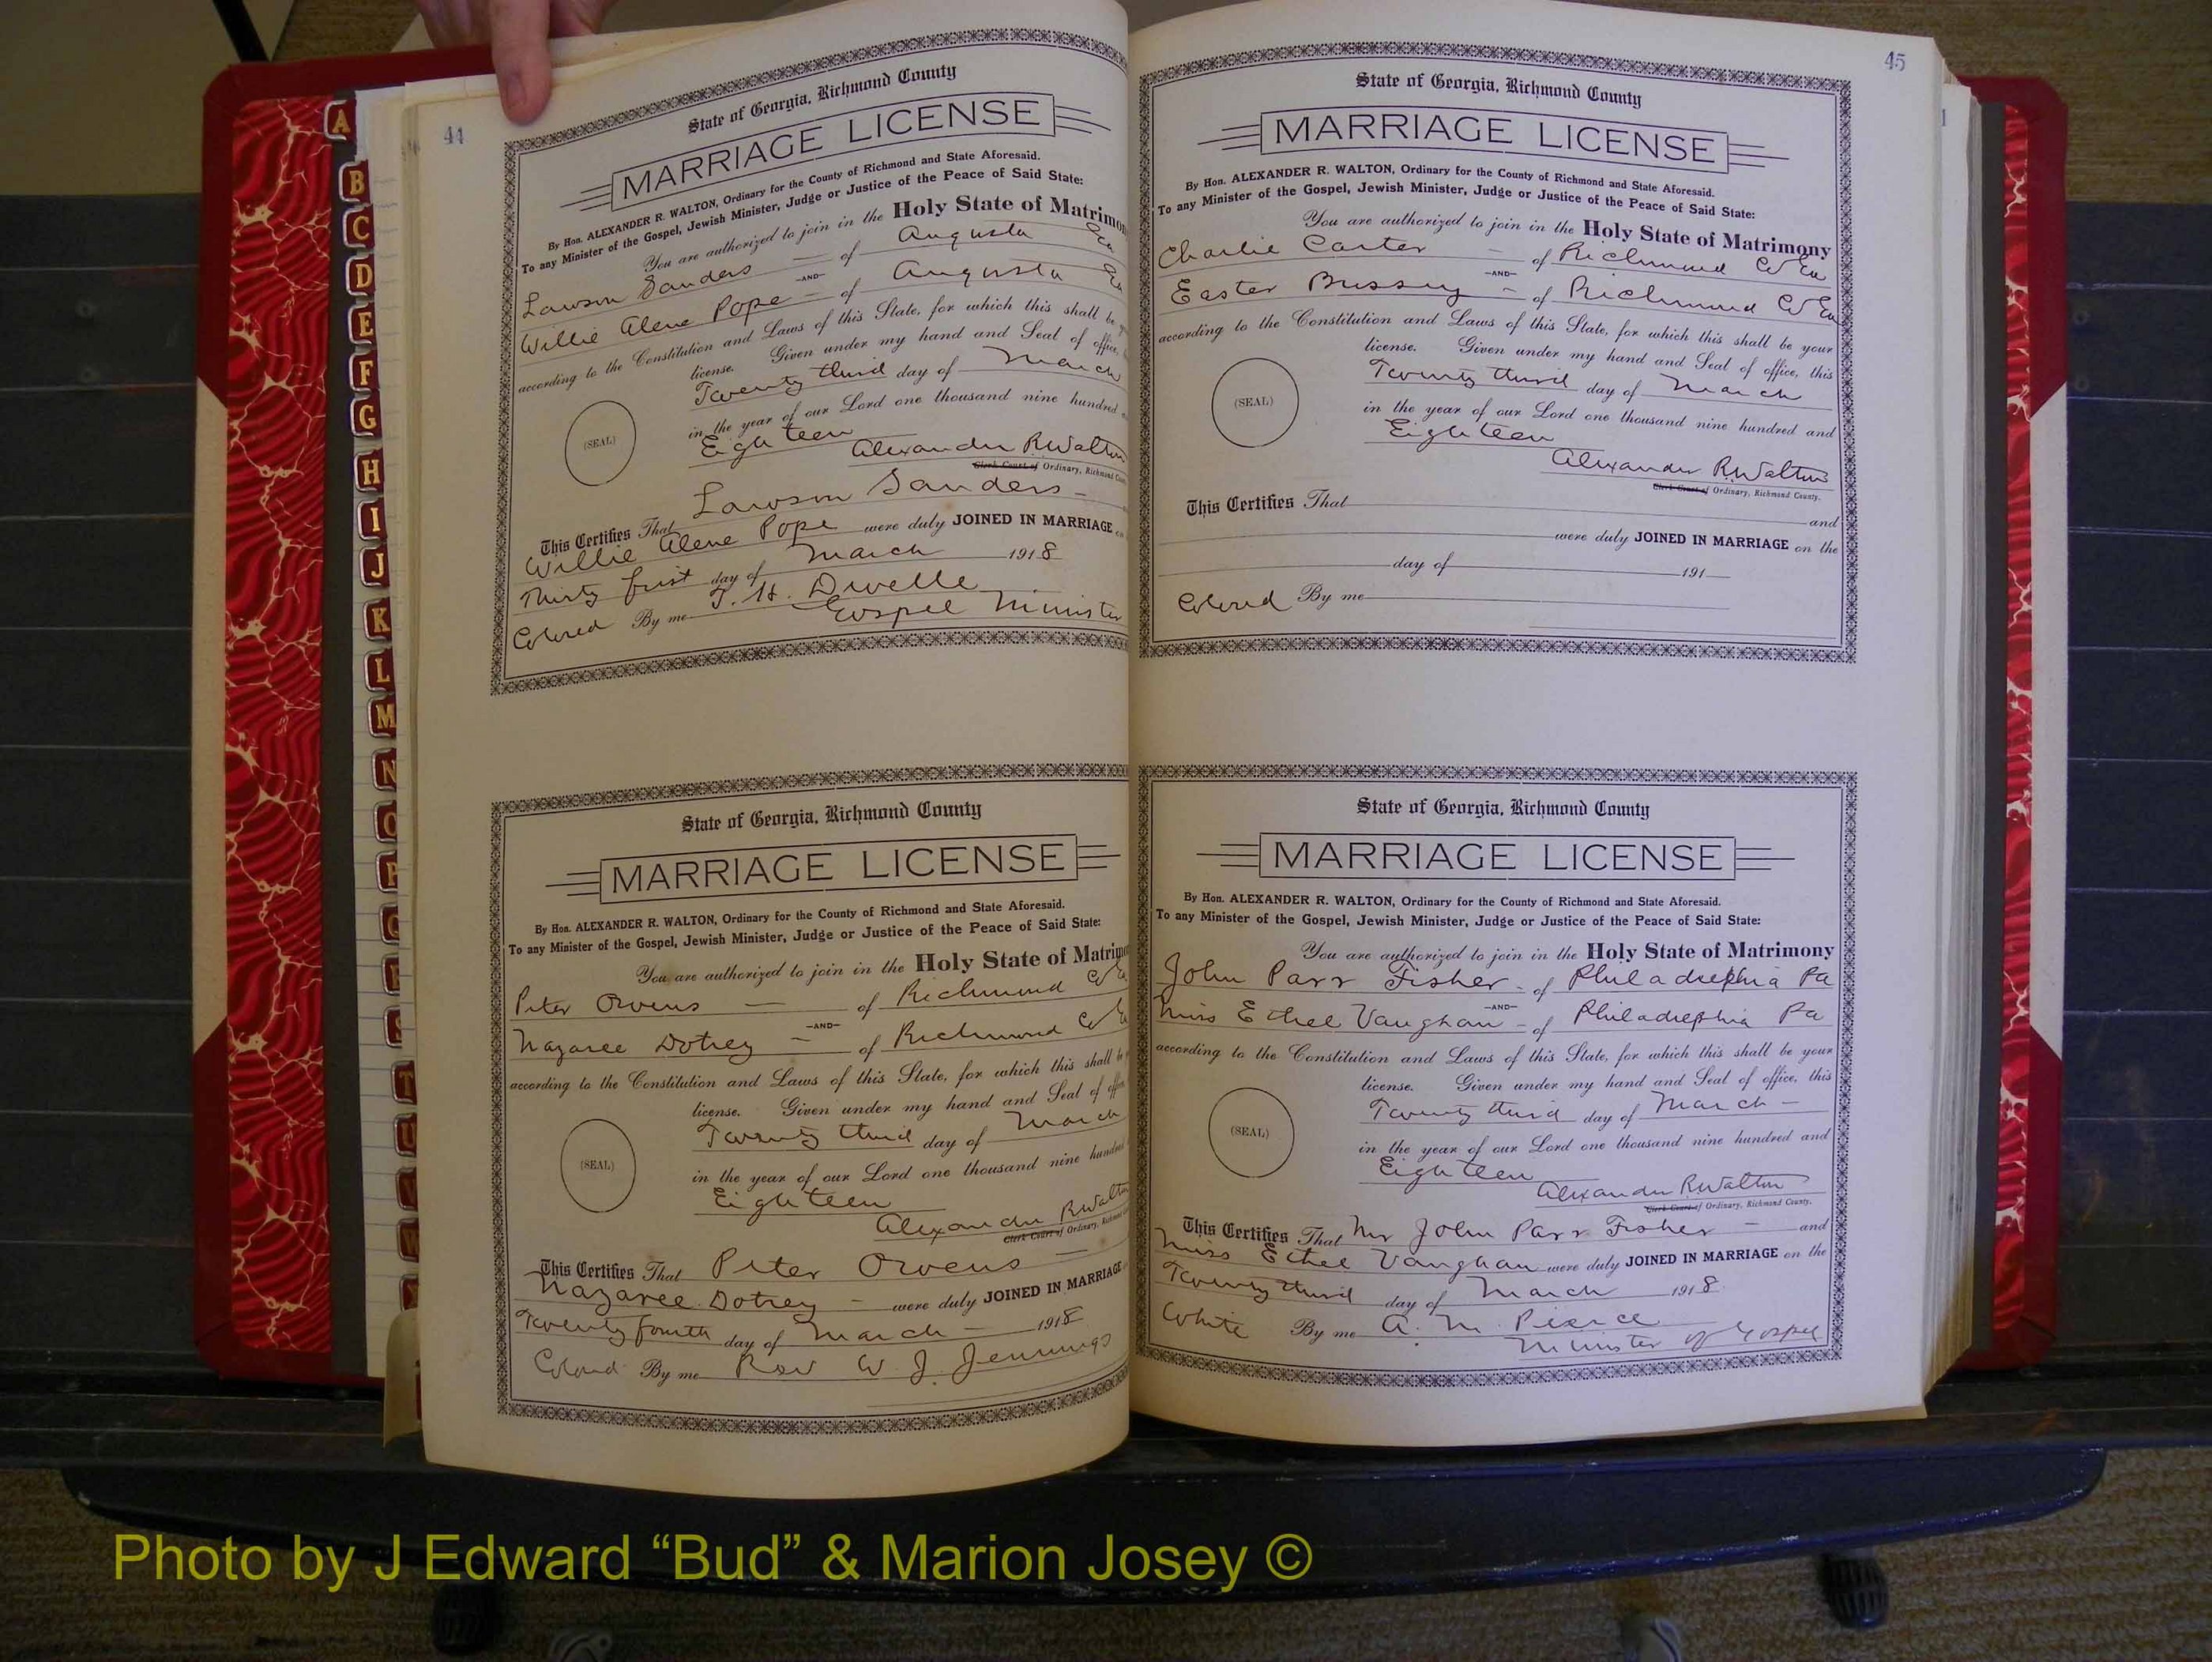 A
B
C
D
E
F
G
H
I
J
K
L
M
N
O
P
44
State of Georgia, Richmond County
MARRIAGE LICENSE
By Hon. ALEXANDER R. WALTON, Ordinary for the County of Richmond and State Aforesaid.
To any Minister of the Gospel, Jewish Minister, Judge or Justice of the Peace of Said State:
You are authorized to join in the Holy State of Matrimo
Lawson Sanders — of Augusta Ga
—AND—
Willie Alene Pope — of Augusta Ga
according to the Constitution and Laws of this State, for which this shall be
license. Given under my hand and Seal of office,
Twenty third day of March
in the year of our Lord one thousand nine hundred
Eighteen
(SEAL)
Alexander R Walton
Clerk Court of Ordinary, Richmond
Lawson Sanders —
This Certifies That
Willie Alene Pope were duly JOINED IN MARRIAGE
Thirty first day of March 1918
Colored By me J. H. Dwelle
Gospel Minister
State of Georgia, Richmond County
MARRIAGE LICENSE
By Hon. ALEXANDER R. WALTON, Ordinary for the County of Richmond and State Aforesaid.
To any Minister of the Gospel, Jewish Minister, Judge or Justice of the Peace of Said State:
You are authorized to join in the Holy State of Matrimo
Peter Owens — of Richmond Co Ga
—AND—
Nazaree Dotrey — of Richmond Co Ga
according to the Constitution and Laws of this State, for which this shall be
license. Given under my hand and Seal of
Twenty third day of March
in the year of our Lord one thousand nine hundred
Eighteen
(SEAL)
Alexander R Walton
Clerk Court of Ordinary,
This Certifies That Peter Owens —
Nazaree Dotrey — were duly JOINED IN MARRIAGE
Twenty fourth day of March — 1918
Colored By me Rev W. J. Jennings
45
State of Georgia, Richmond County
MARRIAGE LICENSE
By Hon. ALEXANDER R. WALTON, Ordinary for the County of Richmond and State Aforesaid.
To any Minister of the Gospel, Jewish Minister, Judge or Justice of the Peace of Said State:
You are authorized to join in the Holy State of Matrimony
Charlie Carter — of Richmond Co Ga
—AND—
Easter Bussey — of Richmond Co Ga
according to the Constitution and Laws of this State, for which this shall be your
license. Given under my hand and Seal of office, this
Twenty third day of March
in the year of our Lord one thousand nine hundred and
Eighteen
(SEAL)
Alexander R Walton
Clerk Court of Ordinary, Richmond County.
This Certifies That and
were duly JOINED IN MARRIAGE on the
day of 191
Colored By me
State of Georgia, Richmond County
MARRIAGE LICENSE
By Hon. ALEXANDER R. WALTON, Ordinary for the County of Richmond and State Aforesaid.
To any Minister of the Gospel, Jewish Minister, Judge or Justice of the Peace of Said State:
You are authorized to join in the Holy State of Matrimony
John Parr Fisher — of Philadelphia Pa
—AND—
Miss Ethel Vaughan — of Philadelphia Pa
according to the Constitution and Laws of this State, for which this shall be your
license. Given under my hand and Seal of office, this
Twenty third day of March —
in the year of our Lord one thousand nine hundred and
Eighteen
(SEAL)
Alexander R Walton
Clerk Court of Ordinary, Richmond County.
This Certifies That Mr John Parr Fisher — and
Miss Ethel Vaughan were duly JOINED IN MARRIAGE on the
Twenty third day of March 1918
White By me A. M. Pierce
Minister of Gospel
Photo by J Edward “Bud” & Marion Josey ©